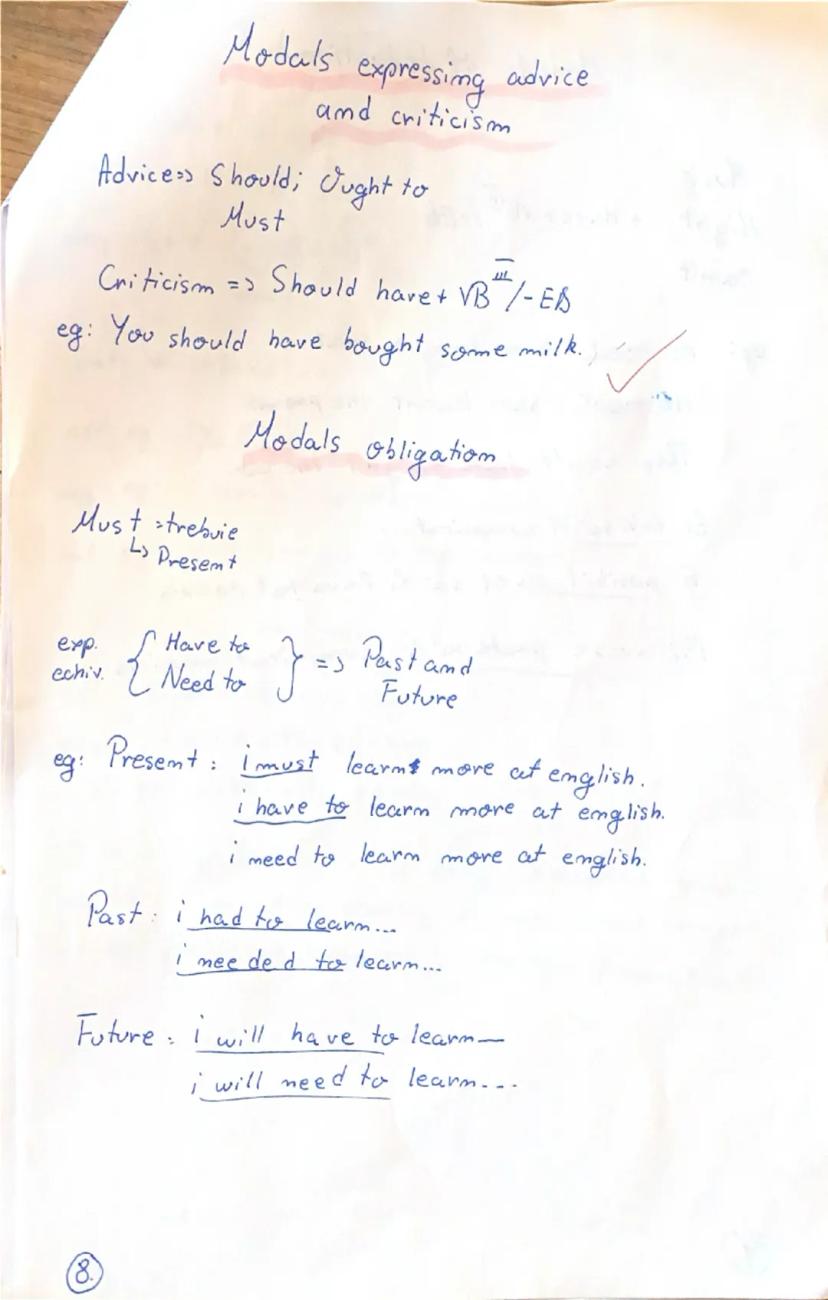 Modals expressing advice
and criticism
Advice => Should; Ought to
Must
Criticism => Should have + VB III/-ED
eg: You should have bought some milk.
Modals obligation
Must = trebuie
↳ Present
exp. echiv. { Have to Need to } => Past and Future
eg: Present: i must learn more at english.
i have to learn more at english.
i need to learn more at english.
Past: i had to learn...
i needed to learn...
Future: i will have to learn—
i will need to learn...
8.